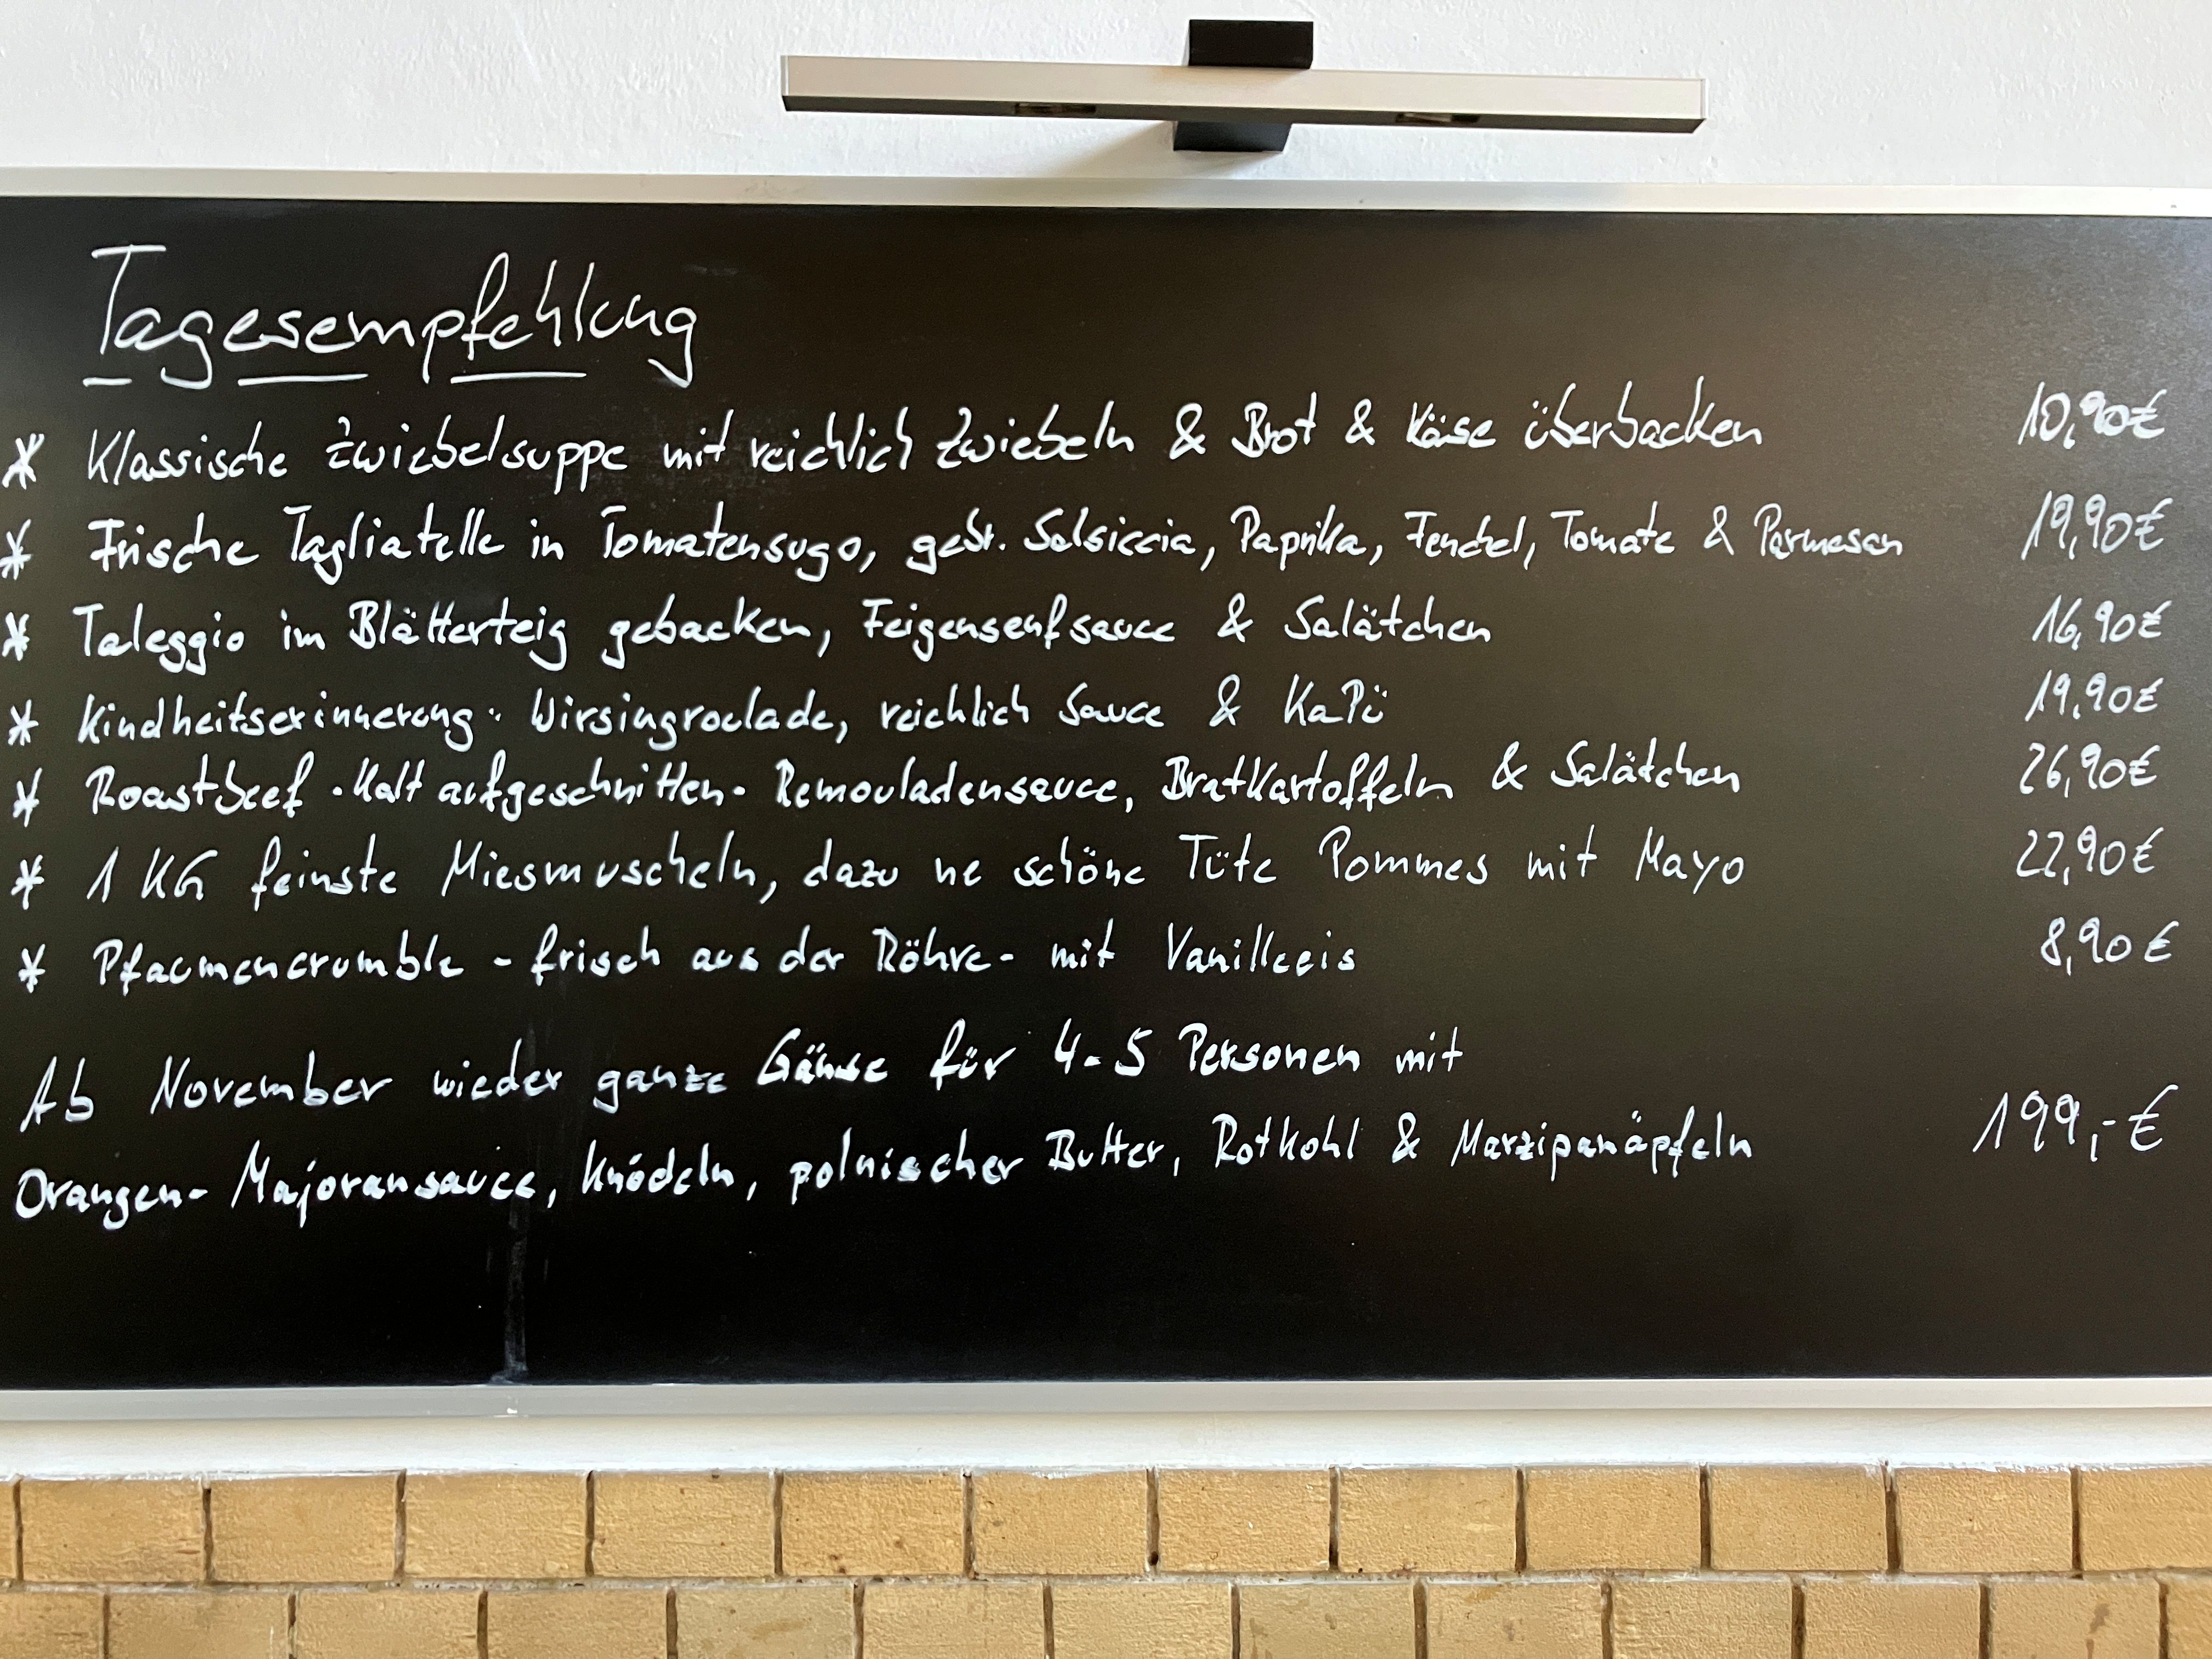 Tagesempfehlung
* Klassische Zwiebelsuppe mit reichlich Zwiebeln & Brot & Käse überbacken 10,90€
* Frische Tagliatelle in Tomatensugo, gebr. Salsiccia, Paprika, Fenchel, Tomate & Parmesan 19,90€
* Taleggio im Blätterteig gebacken, Feigensenfsauce & Salätchen 16,90€
* Kindheitserinnerung: Wirsingroulade, reichlich Sauce & KaPü 19,90€
* Roastbeef - kalt aufgeschnitten - Remouladensauce, Bratkartoffeln & Salätchen 26,90€
* 1 KG feinste Miesmuscheln, dazu ne schöne Tüte Pommes mit Mayo 22,90€
* Pflaumencrumble - frisch aus der Röhre - mit Vanilleeis 8,90€
Ab November wieder ganze Gänse für 4-5 Personen mit
Orangen-Majoransauce, Knödeln, polnischer Butter, Rotkohl & Marzipanäpfeln 199,-€